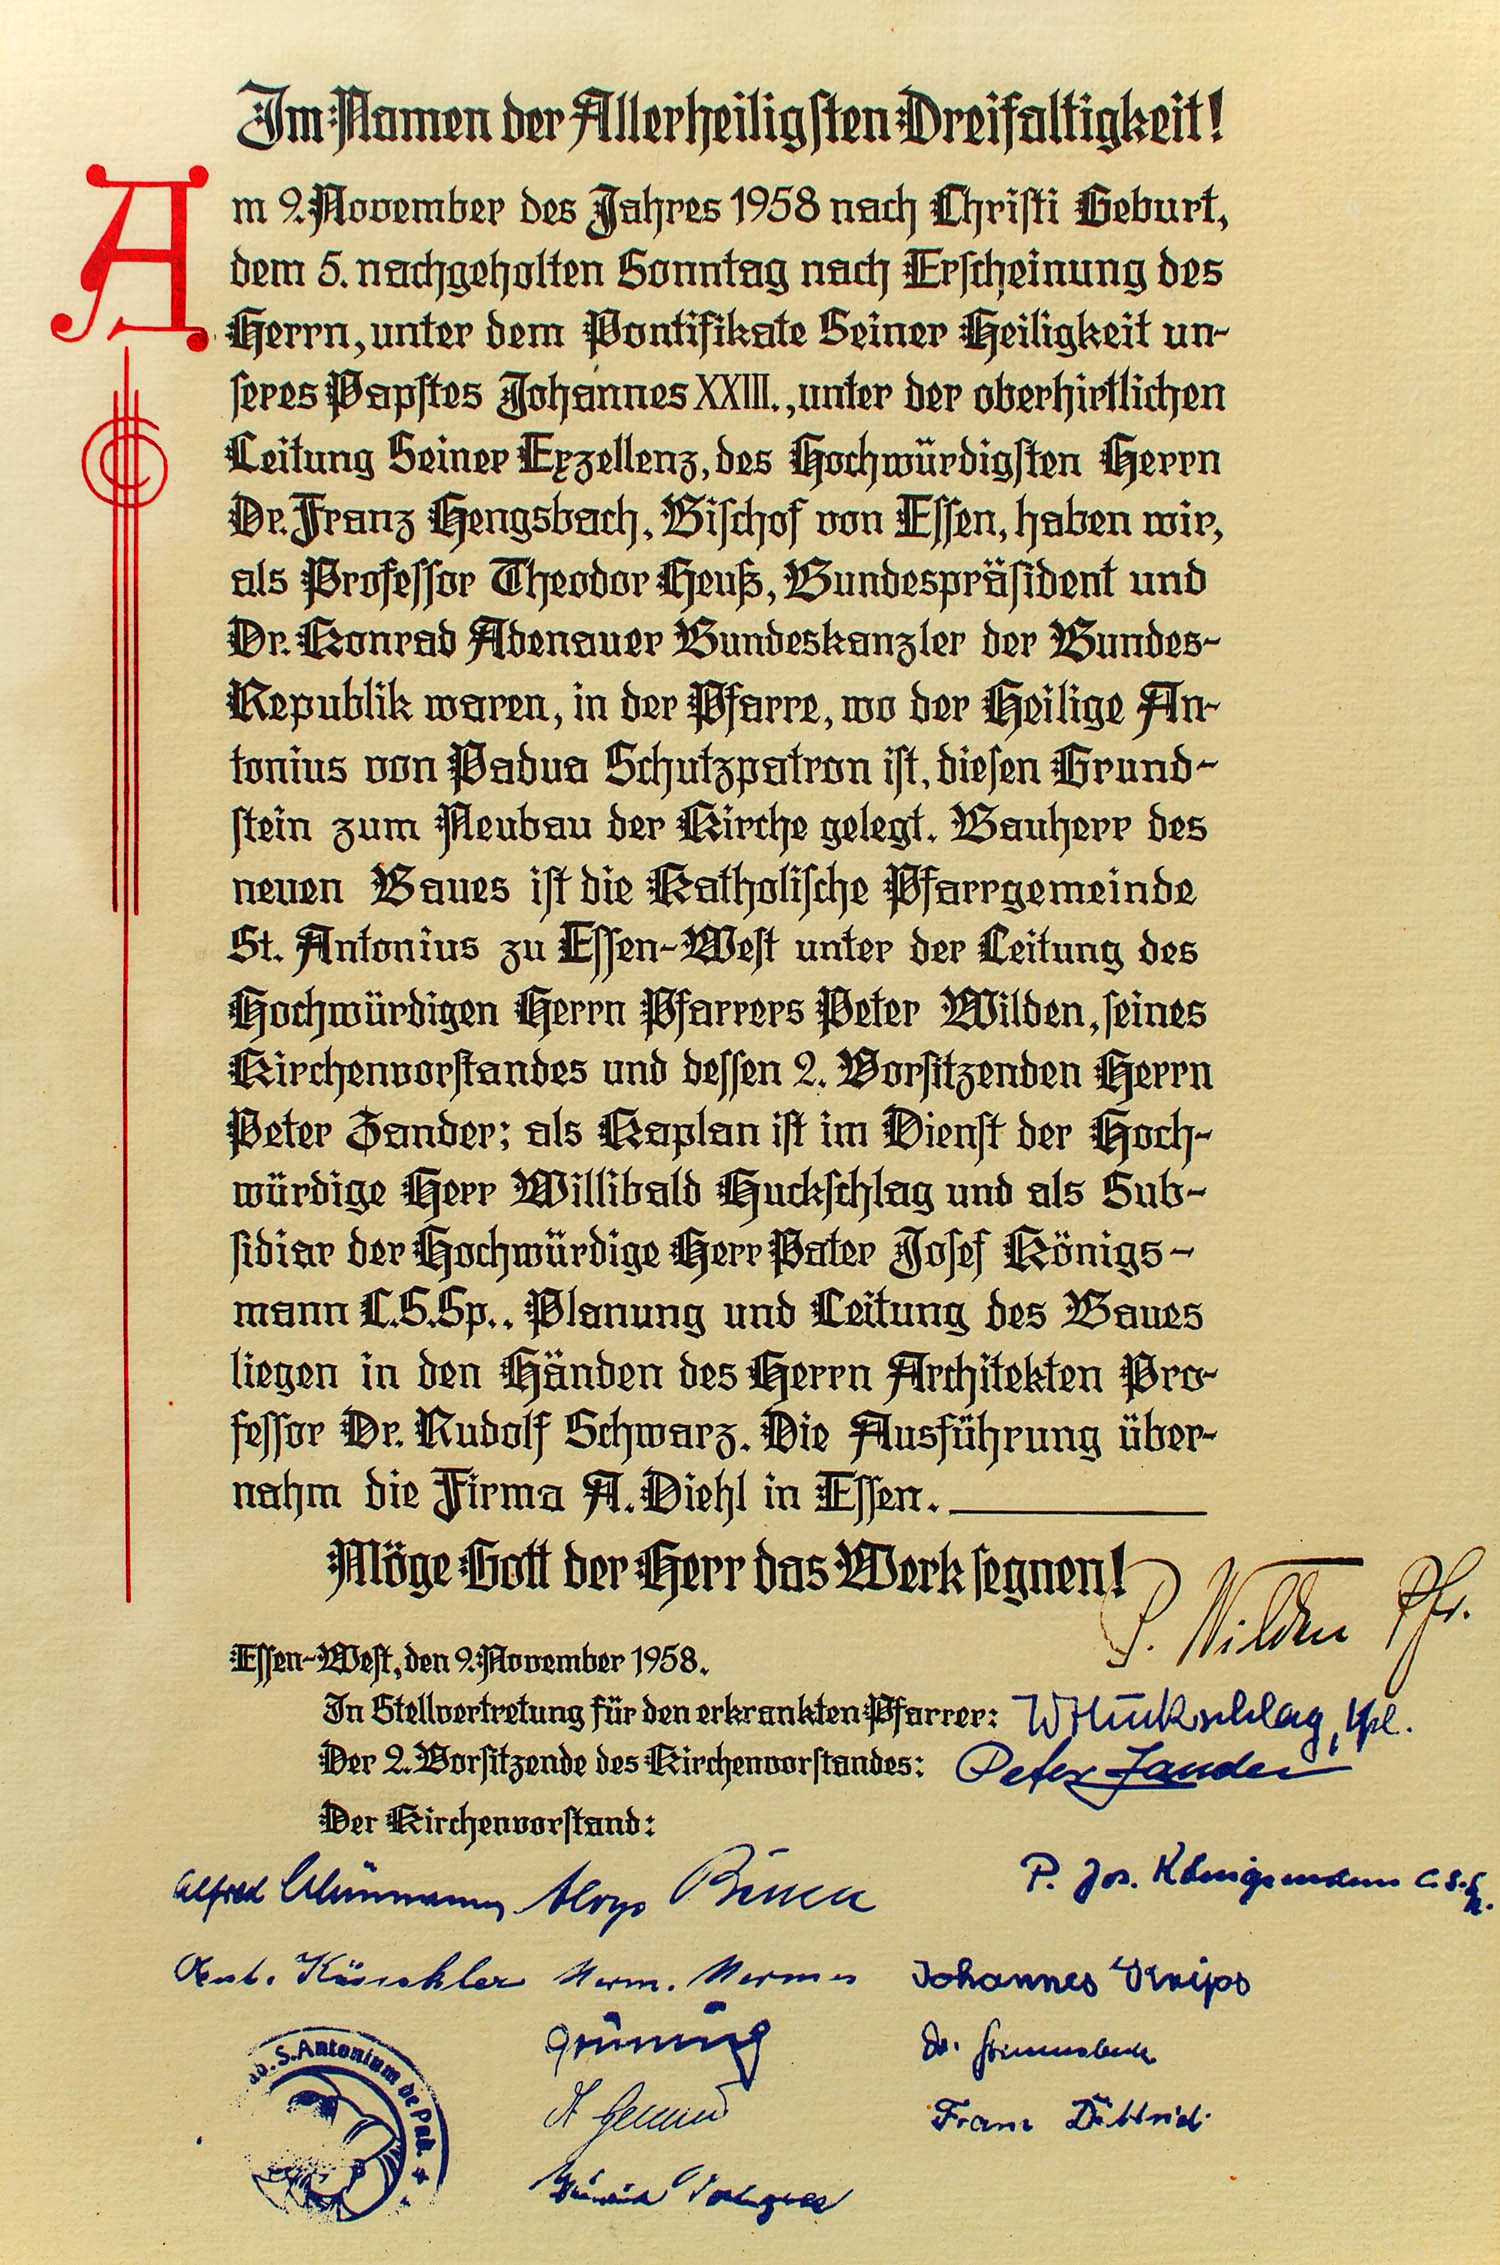 Im Namen der Allerheiligsten Dreifaltigkeit!
Am 9. November des Jahres 1958 nach Christi Geburt,
dem 5. nachgeholten Sonntag nach Erscheinung des
Herrn, unter dem Pontifikate Seiner Heiligkeit un-
seres Papstes Johannes XXIII., unter der oberhirtlichen
Leitung Seiner Exzellenz, des Hochwürdigsten Herrn
Dr. Franz Hengsbach, Bischof von Essen, haben wir,
als Professor Theodor Heuß, Bundespräsident und
Dr. Konrad Adenauer Bundeskanzler der Bundes-
Republik waren, in der Pfarre, wo der Heilige An-
tonius von Padua Schutzpatron ist, diesen Grund-
stein zum Neubau der Kirche gelegt. Bauherr des
neuen Baues ist die Katholische Pfarrgemeinde
St. Antonius zu Essen-West unter der Leitung des
Hochwürdigen Herrn Pfarrers Peter Wilden, seines
Kirchenvorstandes und dessen 2. Vorsitzenden Herrn
Peter Zander; als Kaplan ist im Dienst der Hoch-
würdige Herr Willibald Huckschlag und als Sub-
sidiar der Hochwürdige Herr Pater Josef Königs-
mann C.S.Sp.. Planung und Leitung des Baues
liegen in den Händen des Herrn Architekten Pro-
fessor Dr. Rudolf Schwarz. Die Ausführung über-
nahm die Firma A. Diehl in Essen.
Möge Gott der Herr das Werk segnen!
P. Wilden Pfr.
Essen-West, den 9. November 1958.
In Stellvertretung für den erkrankten Pfarrer: W Huckschlag, Kpl.
Der 2. Vorsitzende des Kirchenvorstandes: Peter Zander
Der Kirchenvorstand:
Alfred Aloys
P. Jos. Königsmann C.S.Sp.
Herm. Hermes Johannes
Grüning
Dr.
Franz
S. Antonium de Pad.